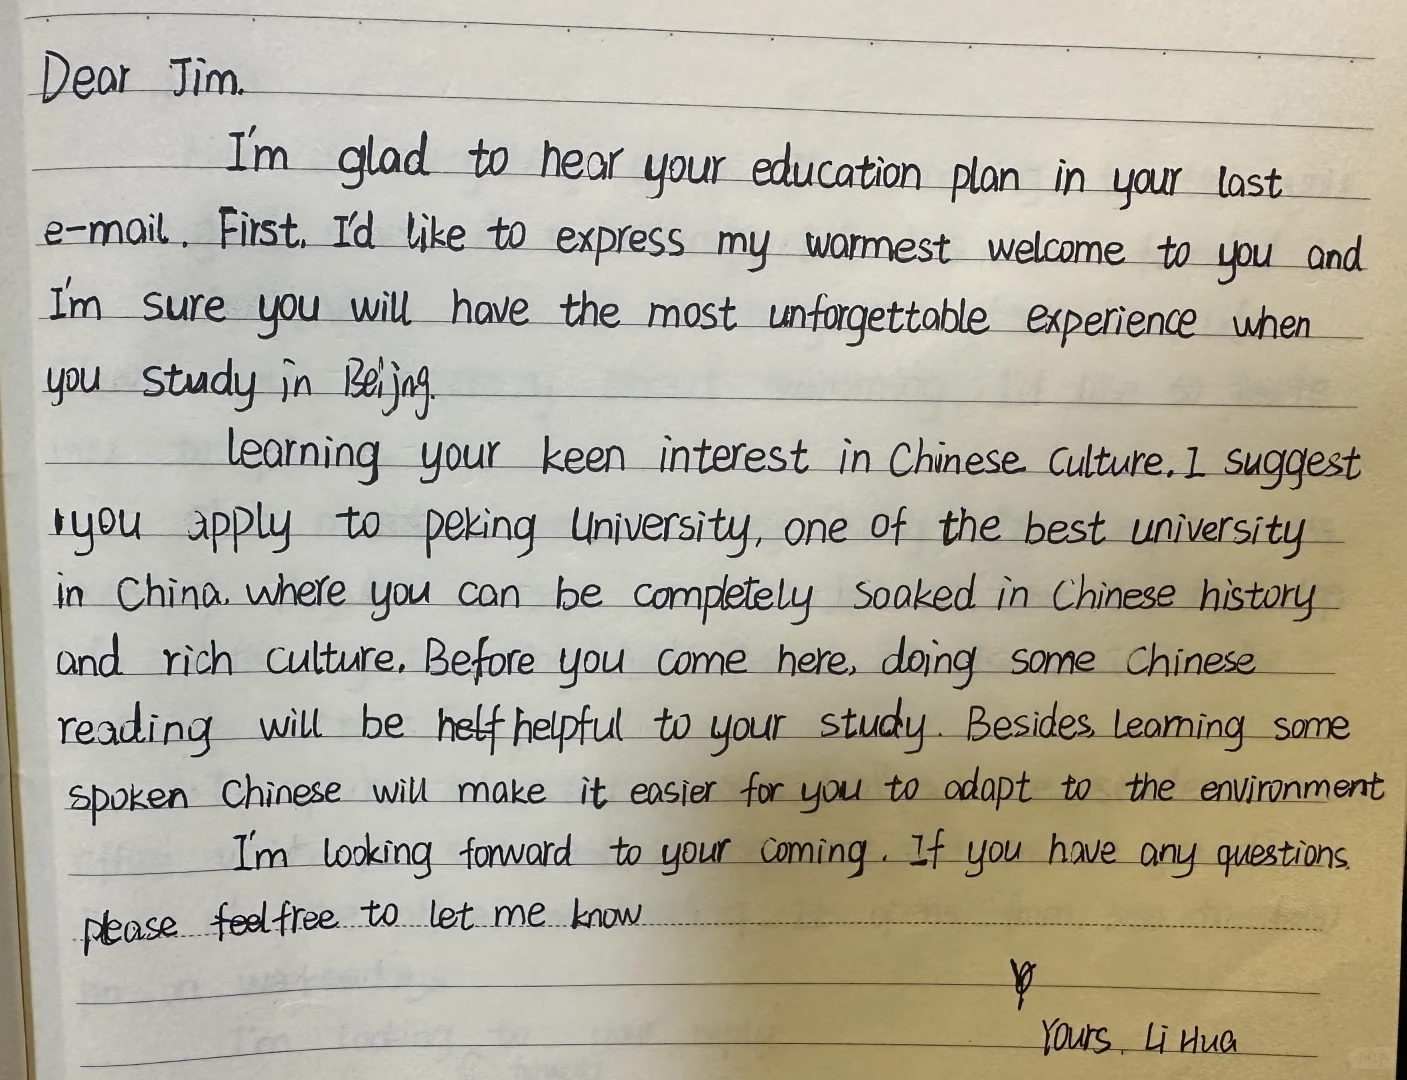 Dear Jim.
I'm glad to hear your education plan in your last
e-mail. First, I'd like to express my warmest welcome to you and
I'm sure you will have the most unforgettable experience when
you study in Beijng.
learning your keen interest in Chinese culture, I suggest
you apply to peking University, one of the best university
in China, where you can be completely soaked in Chinese history
and rich culture. Before you come here, doing some Chinese
reading will be helf helpful to your study. Besides, learning some
spoken Chinese will make it easier for you to adapt to the environment
I'm looking forward to your coming. If you have any questions,
please feel free to let me know
Yours, Li Hua